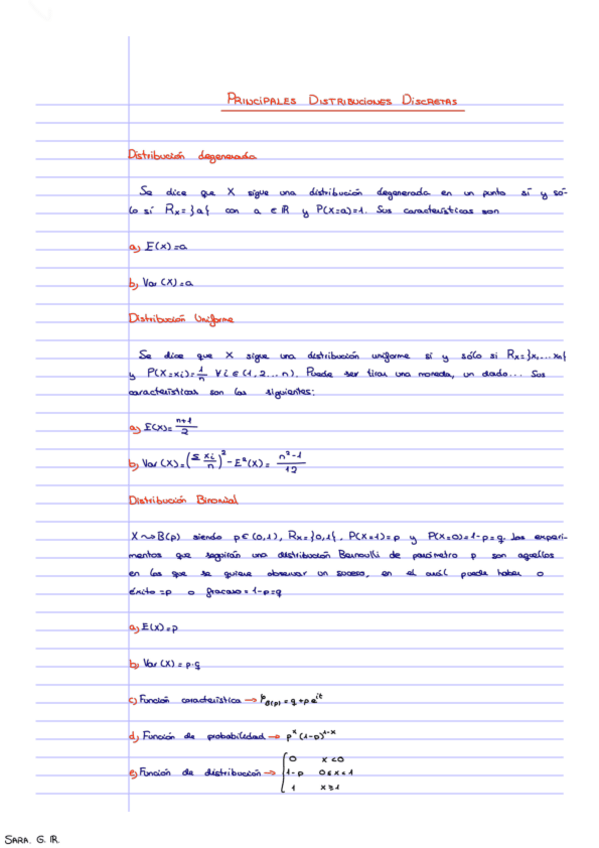 PRINCIPALES DISTRIBUCIONES DISCRETAS
Distribución degenerada
Se dice que X sigue una distribución degenerada en un punto sí y só-
lo si Rx= }a{ con a ∈ IR y P(X=a)=1. Sus características son
a) E(X)=a
b) Var (X)=a
Distribución Uniforme
Se dice que X sigue una distribución uniforme sí y sólo si Rx=}x,...xn{
y P(X=xi)=1/n ∀ i ∈ (1, 2... n). Puede ser tirar una moneda, un dado... Sus
características son las siguientes:
a) E(X)= n+1/2
b) Var (X)=(Σ xi/n)² - E²(X)= n²-1/12
Distribución Binomial
X ⤳ B(p) siendo p ∈ (0,1), Rx=}0,1{. P(X=1)=p y P(X=0)=1-p=q. Los experi-
mentos que seguirán una distribución Bernoulli de parámetro p son aquellos
en los que se quiere observar un suceso, en el cuál puede haber o
éxito =p o fracaso = 1-p=q
a) E(X)=p
b) Var (X) = p·q
c) Función característica → φB(p) = q + p e^it
d) Función de probabilidad → p^x (1-p)^1-x
e) Función de distribución → { 0 x<0
1-p 0≤x<1
1 x≥1
SARA. G. R.